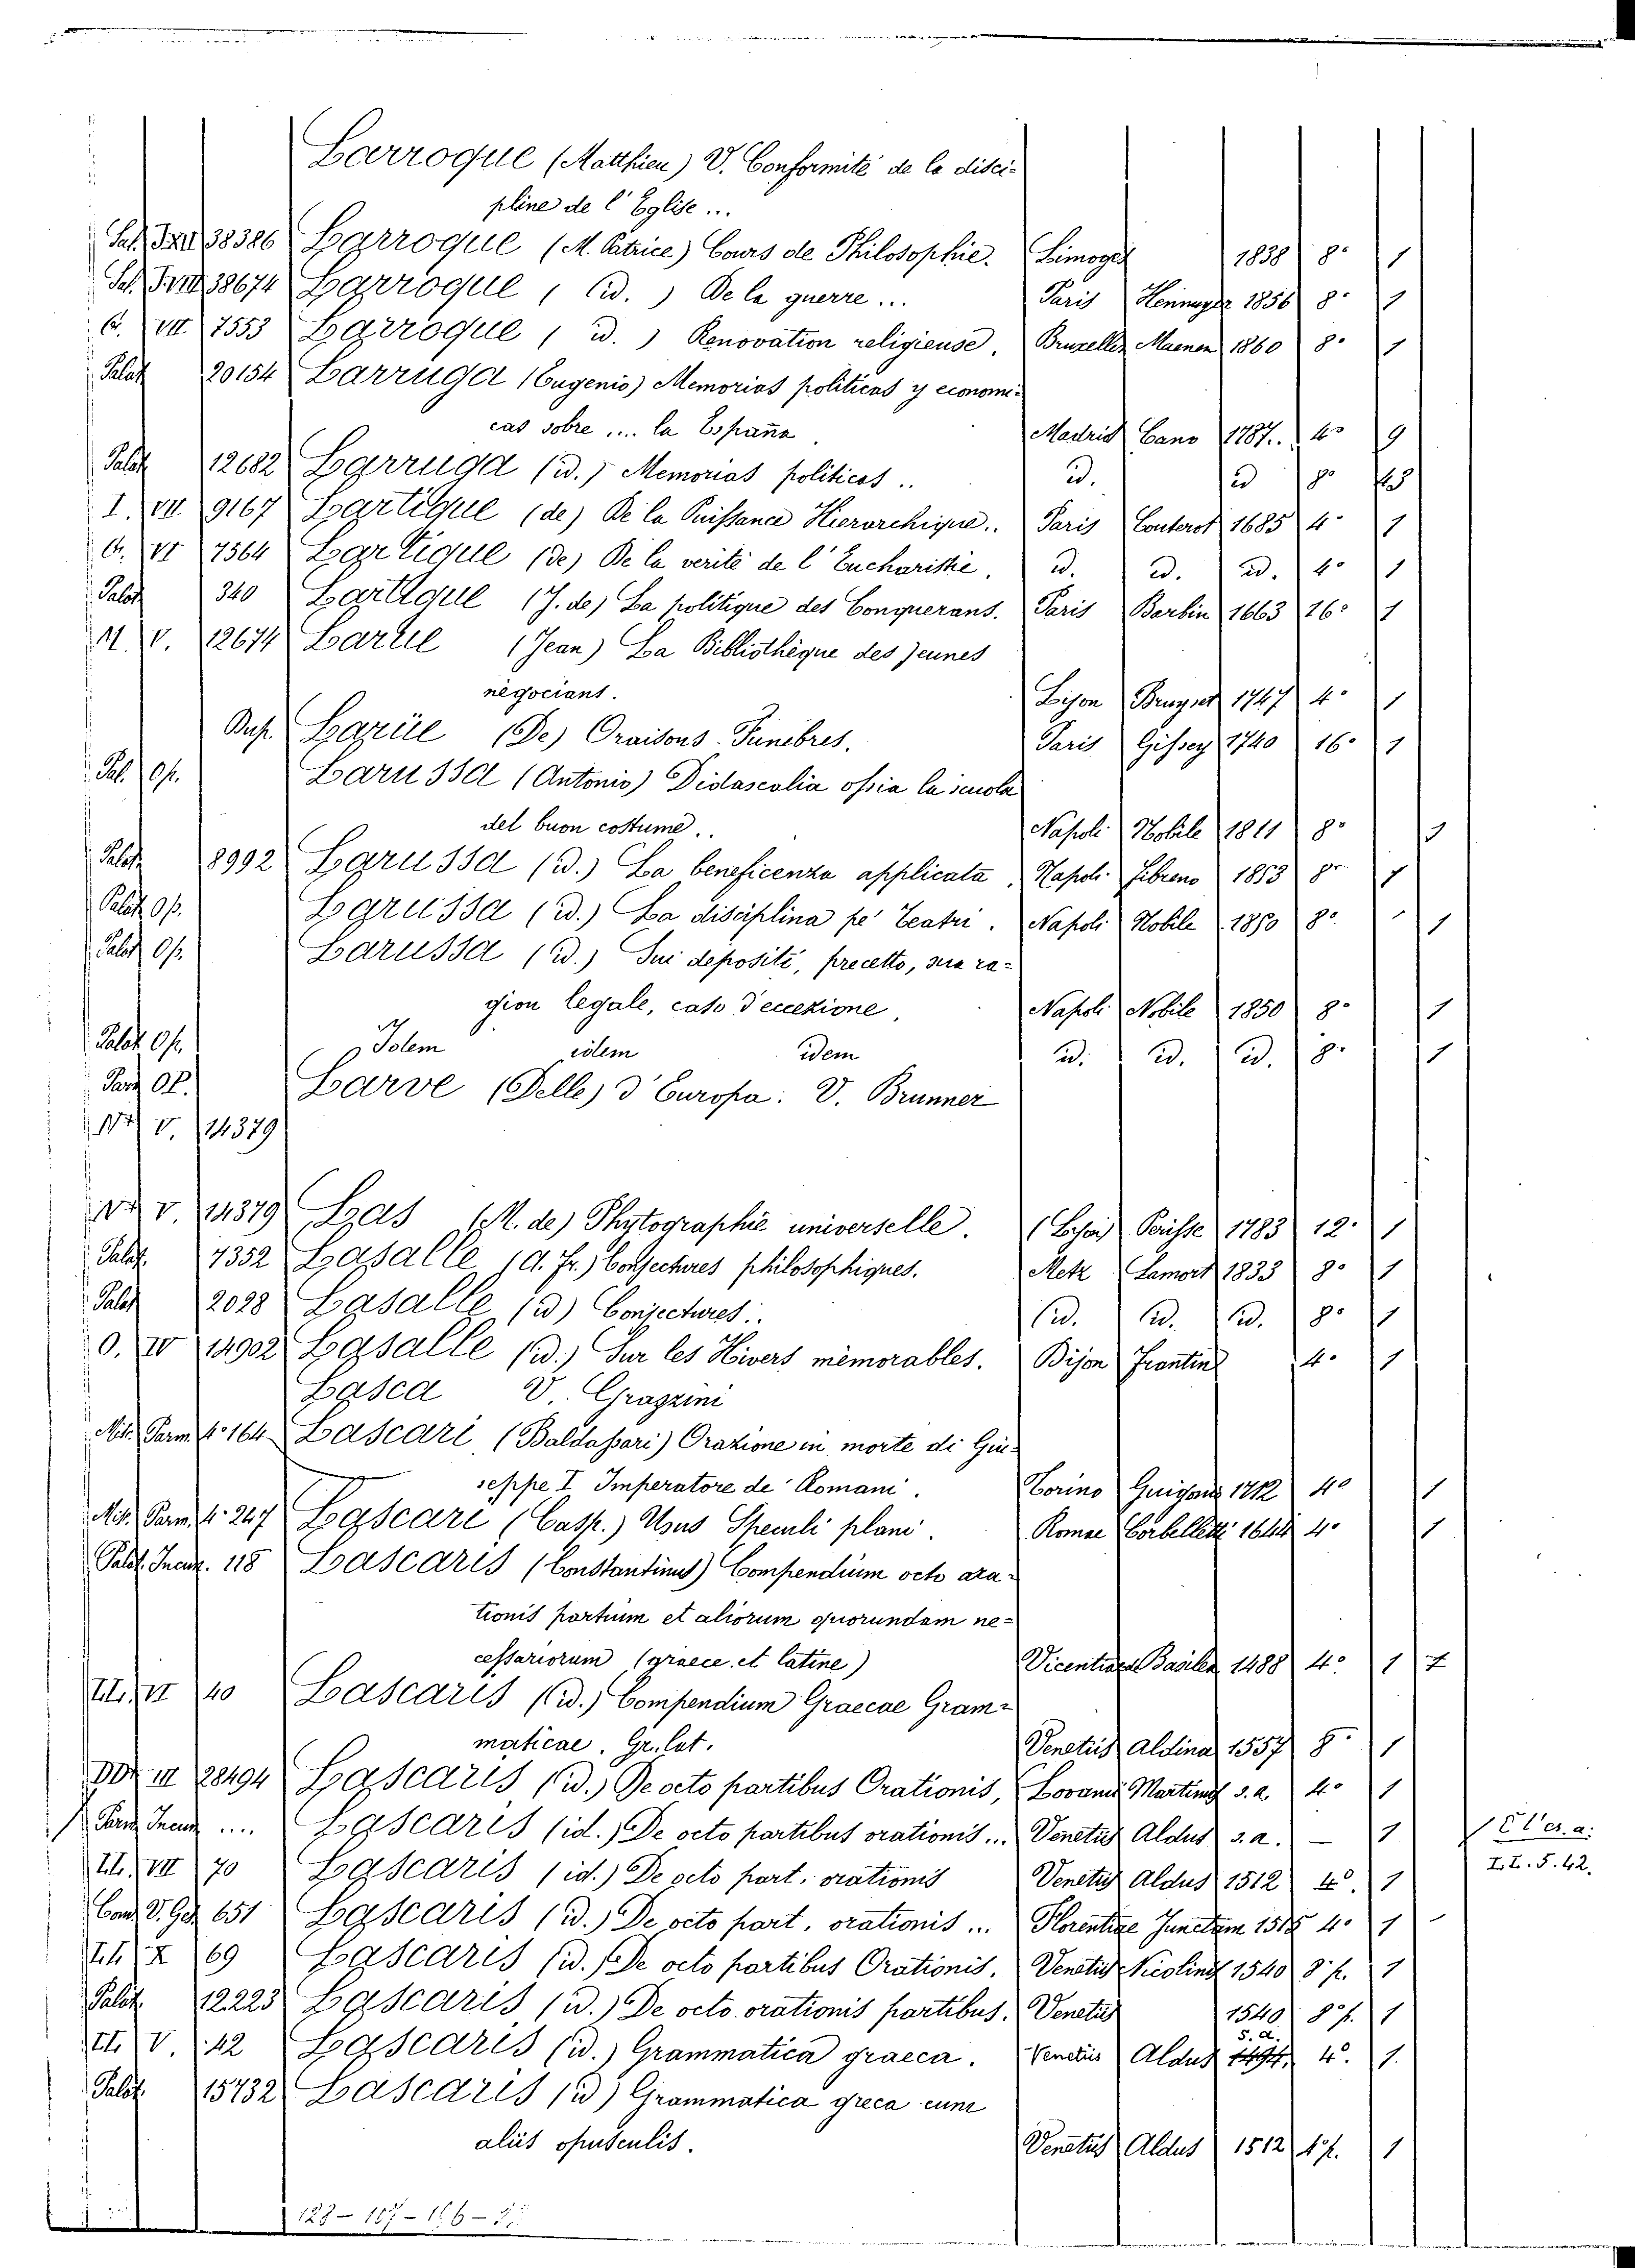 Larroque (Matthieu) V. Conformité de la disci-
pline de l'Eglise ...
38386 Larroque (M. Patrice) Cours de Philosophie. Limoges 1838 8º 1
38674 Larroque ( id. ) De la guerre ... Paris 1856 8º 1
G. VII 7553 Larroque ( id. ) Renovation religieuse. Bruxelles 1860 8º 1
Palat. 20154 Larruga (Eugenio) Memorias politicas y economi-
cas sobre .... la España. Madrid Cano 1787.. 4º 9
Palat. 12682 Larruga (id.) Memorias politicas .. id. id 8º
I. VII. 9167 Lartigue (de) De la Puissance Hierarchique.. Paris Couterot 1685 4º 1
G. VI 7564 Lartigue (De) De la verité de l'Eucharistie. id. id. id. 4º 1
Palat. 340 Lartigue (J. de) La politique des Conquerans. Paris Barbin 1663 16º 1
V. 12674 Larue (Jean) La Bibliothèque des jeunes
negociant. Lijon Bruyset 1747 4º 1
Larüe (De) Oraisons Funèbres. Paris Gissey 1740 16º 1
Pal. Op. Larussa (Antonio) Didascalia ossia la scuola
del buon costume.. Napoli Nobile 1811 8º
Palat. 8992 Larussa (id.) La beneficenza applicata. Napoli Fibreno 1853 8º 1
Palat. Op. Larussa (id.) La disciplina pe' Teatri. Napoli Nobile 1850 8º 1
Palat. Op. Larussa (id.) Sui depositi, precetto, sua ra-
gion legale, caso d'eccezione, Napoli Nobile 1850 8º 1
Palat. Op. Idem idem idem id. id. id. 8º 1
Larve (Delle) d'Europa: V. Brunner
V. 14379
V. 14379 Las (M. de) Phytographie universelle. Perisse 1783 12º 1
Palat. 7352 Lasalle (A. Fr.) Conjectures philosophiques. Metz Lamort 1833 8º 1
Palat. 2028 Lasalle (id) Conjectures .. id. id. id. 8º 1
O. IV 14902 Lasalle (id.) Sur les Hivers mémorables. Dijon Frantin 4º 1
Lasca V. Grazzini
Mis. Parm. 4º 164 Lascari (Baldassari) Orazione in morte di Giu-
seppe I Imperatore de' Romani. Torino 1712 4º 1
Mis. Parm. 4º 247 Lascari (Casp.) Usus Speculi plani. Romae Corbelletti 1644 4º 1
Palat. Incun. 118 Lascaris (Constantinus) Compendium octo ara-
tionis partium et aliorum quorundam ne-
cessariorum (graece et latine) Basilea 1488 4º 1
VI 40 Lascaris (id.) Compendium Graecae Gram-
maticae. Gr. lat. Venetiis Aldina 1557 8º 1
III 28494 Lascaris (id.) De octo partibus Orationis, Lovanii Martinus s.a. 4º 1
Parm. Incun. .... Lascaris (id.) De octo partibus orationis... Venetiis Aldus s.a. — 1
I.L. 5. 42.
VII 70 Lascaris (id.) De octo part. orationis Venetiis Aldus 1512 4º. 1
651 Lascaris (id.) De octo part. orationis ... Florentiae 1515 4º 1
X 69 Lascaris (id.) De octo partibus Orationis. Venetiis Nicolinus 1540 8º p. 1
Palat. 12.223 Lascaris (id.) De octo orationis partibus. Venetiis 1540 8º p. 1
V 42 Lascaris (id.) Grammatica graeca. Venetiis Aldus s.a. 1494 4º. 1.
Palat. 15732 Lascaris (id) Grammatica greca cum
aliis opusculis. Venetiis Aldus 1512 4º p. 1